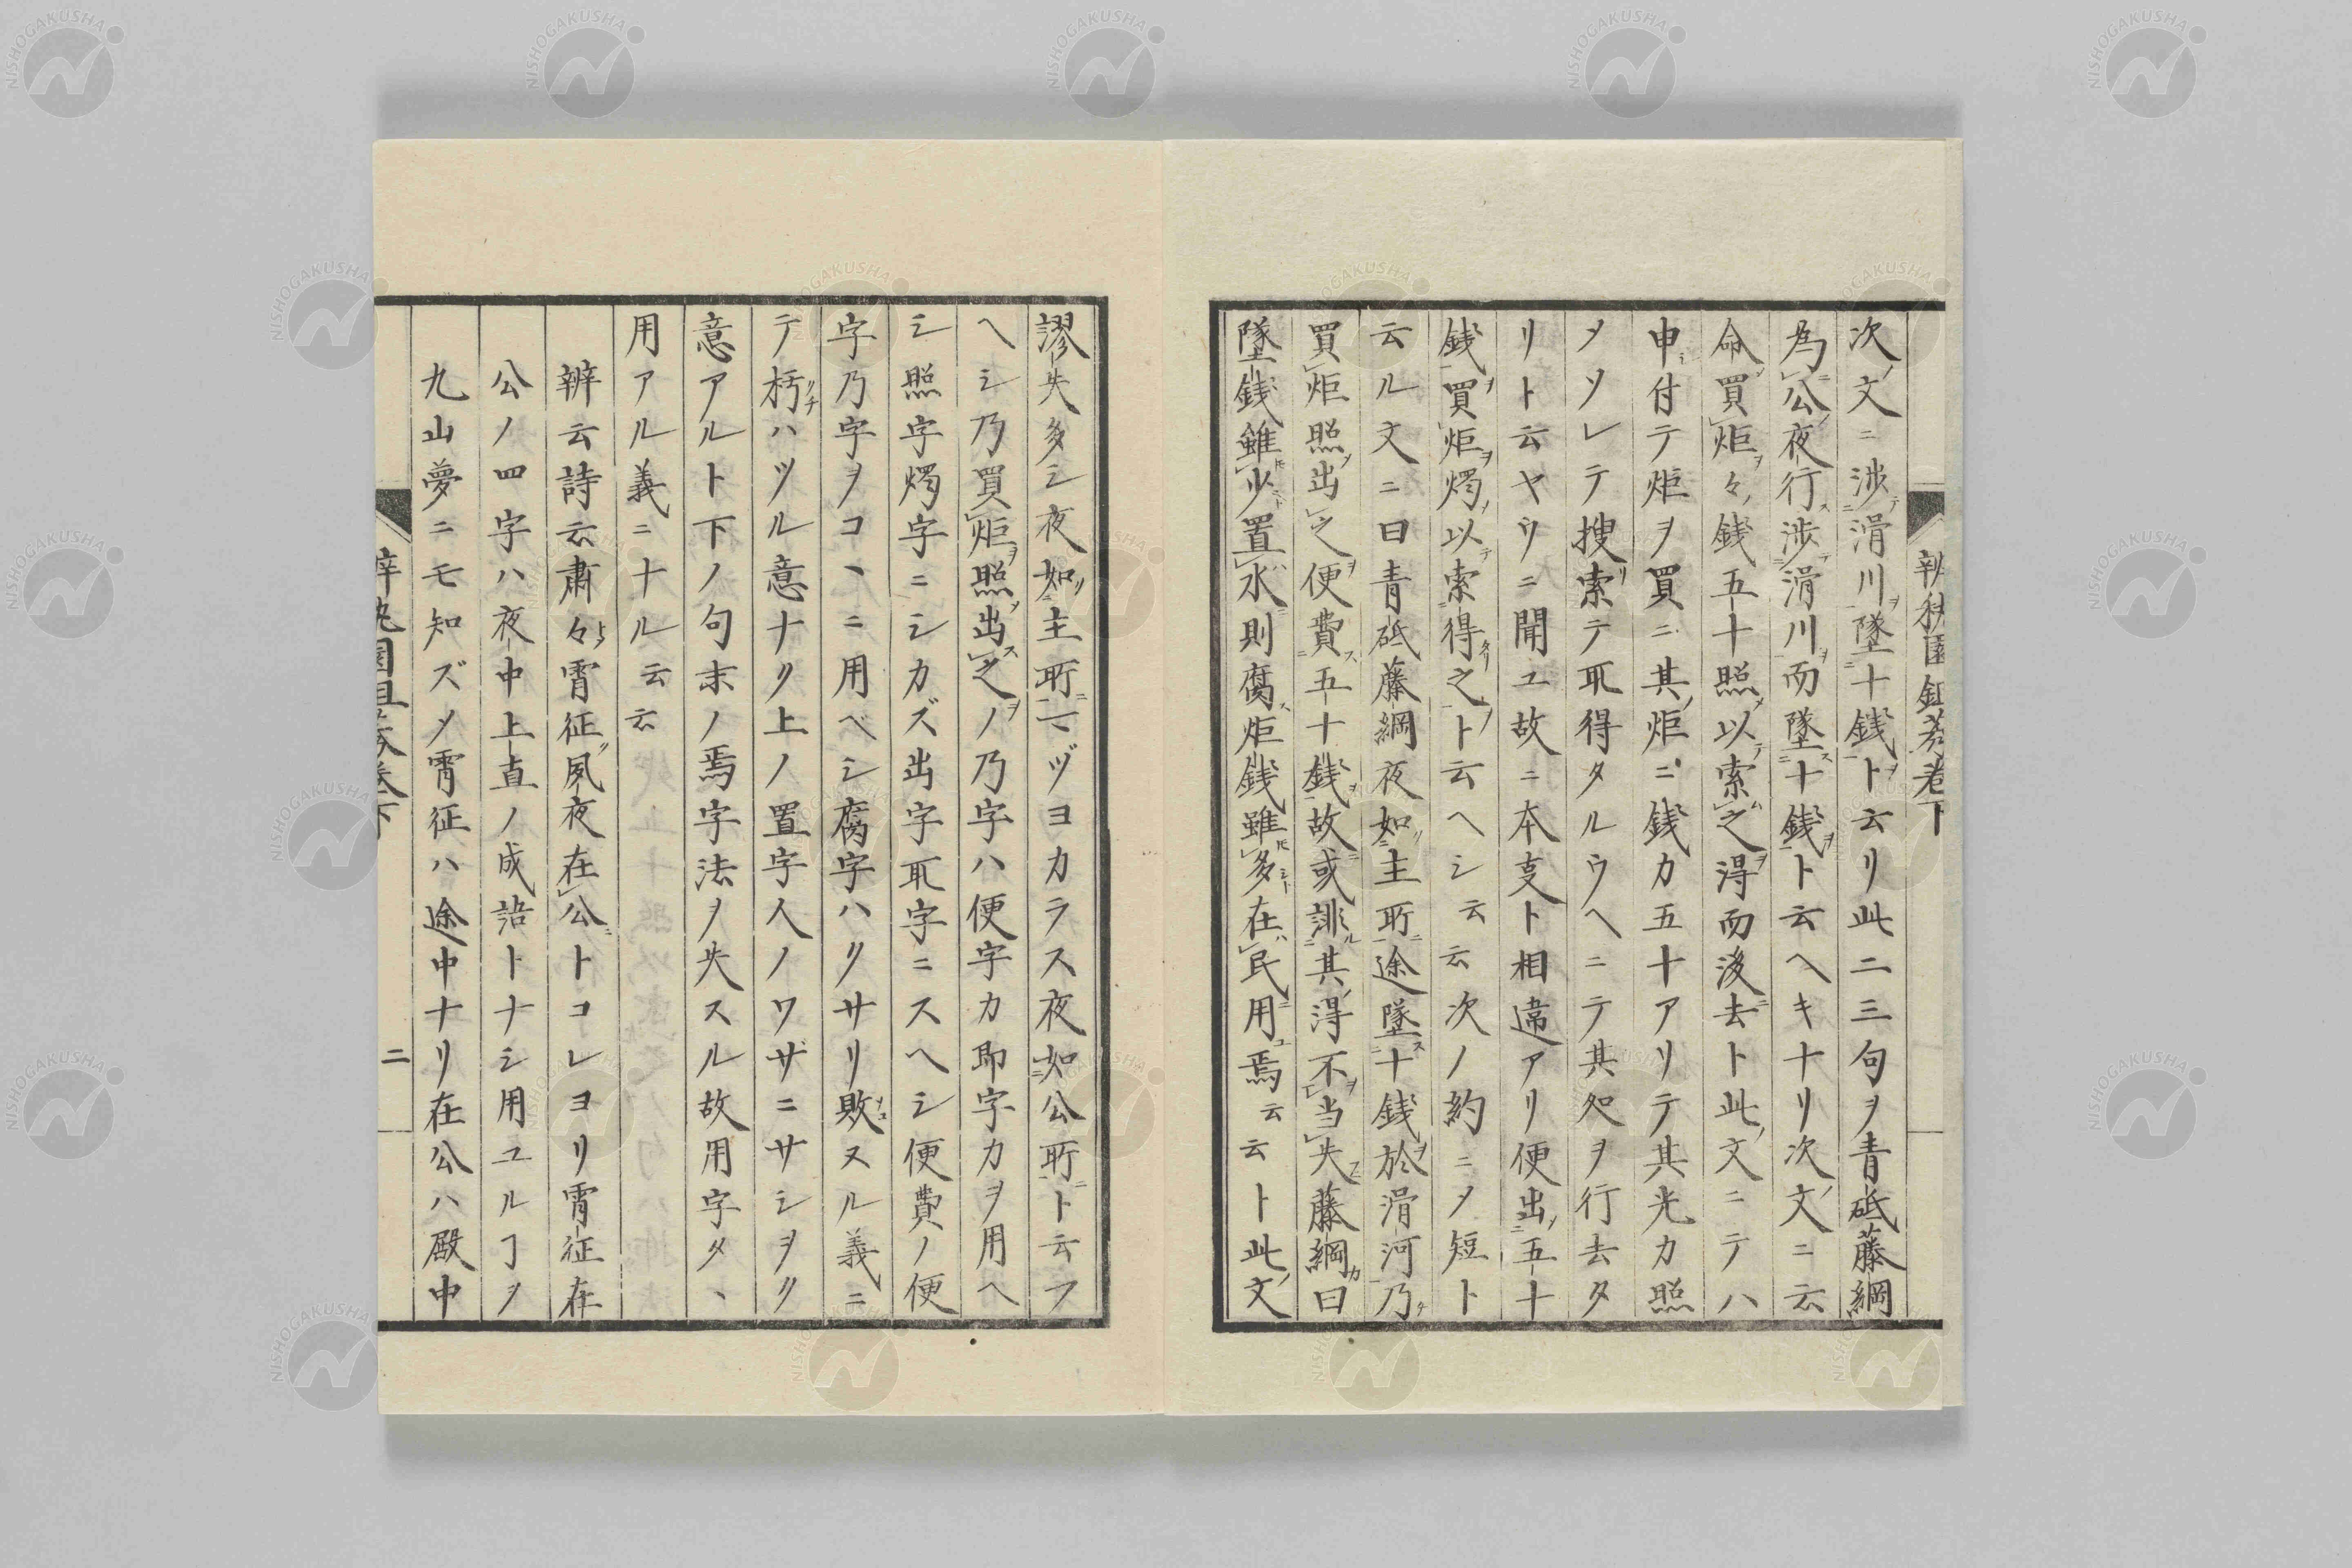 次ノ文ニ渉テ滑川ヲ墜十銭ヲト云リ此二三句ヲ青砥藤綱
為公ノ夜行ス渉テ滑川ヲ而墜ス十銭ヲト云ヘキナリ次ノ文ニ云
命ノ買炬ヲ々ノ銭五十照メ以テ索ム之ヲ得而後去ト此ノ文ニテハ
申シ付テ炬ヲ買ニ其ノ炬ニ銭カ五十アリテ其光カ照
メソレテ捜リ索テ取得タルウヘニテ其処ヲ行去タ
リト云ヤウニ聞ユ故ニ本支ト相違アリ便出ノ五十
銭ヲ買炬ヲ燭ノ以テ索得タリ之ノト云ヘシ云云次ノ約ニメ短ト
云ル文ニ曰青砥藤綱夜如リ主所ニ途墜ス十銭於ヲ滑河乃チ
買炬照ヲ出之便ヲ費ス五十銭ヲ故ニ或誹ル其ノ得不ヲ当失フニ藤綱カ曰
墜銭銭雖少シト置水ニ則腐ス炬銭銭雖多シト在ハ民ニ用ユ焉云云ト此ノ文
謬失多シ夜如リ主所ニーツヅヨカラス夜如公所ニト云フ
ヘシ乃買炬ヲ照ノ出ス之ヲノ乃字ハ便字カ即字カヲ用ヘ
シ照字燭字ニシカズ出字取字ニスヘシ便費ノ便
字乃字ヲコヽニ用ベシ腐字ハクサリ敗ヌル義ニ
テ朽クチハツル意ナク上ノ置字人ノワザニサシヲク
意アルト下ノ句末ノ焉字法ヲ失スル故用字タヽ
用アル義ニナル云云
辨云詩云粛々トシ霄征ク夙夜在公ニトコレヨリ霄征在
公ノ四字ハ夜中上直ノ成語トナシ用ユルヿヲ
九山夢ニモ知ズメ霄征ハ途中ナリ在公ハ殿中
二